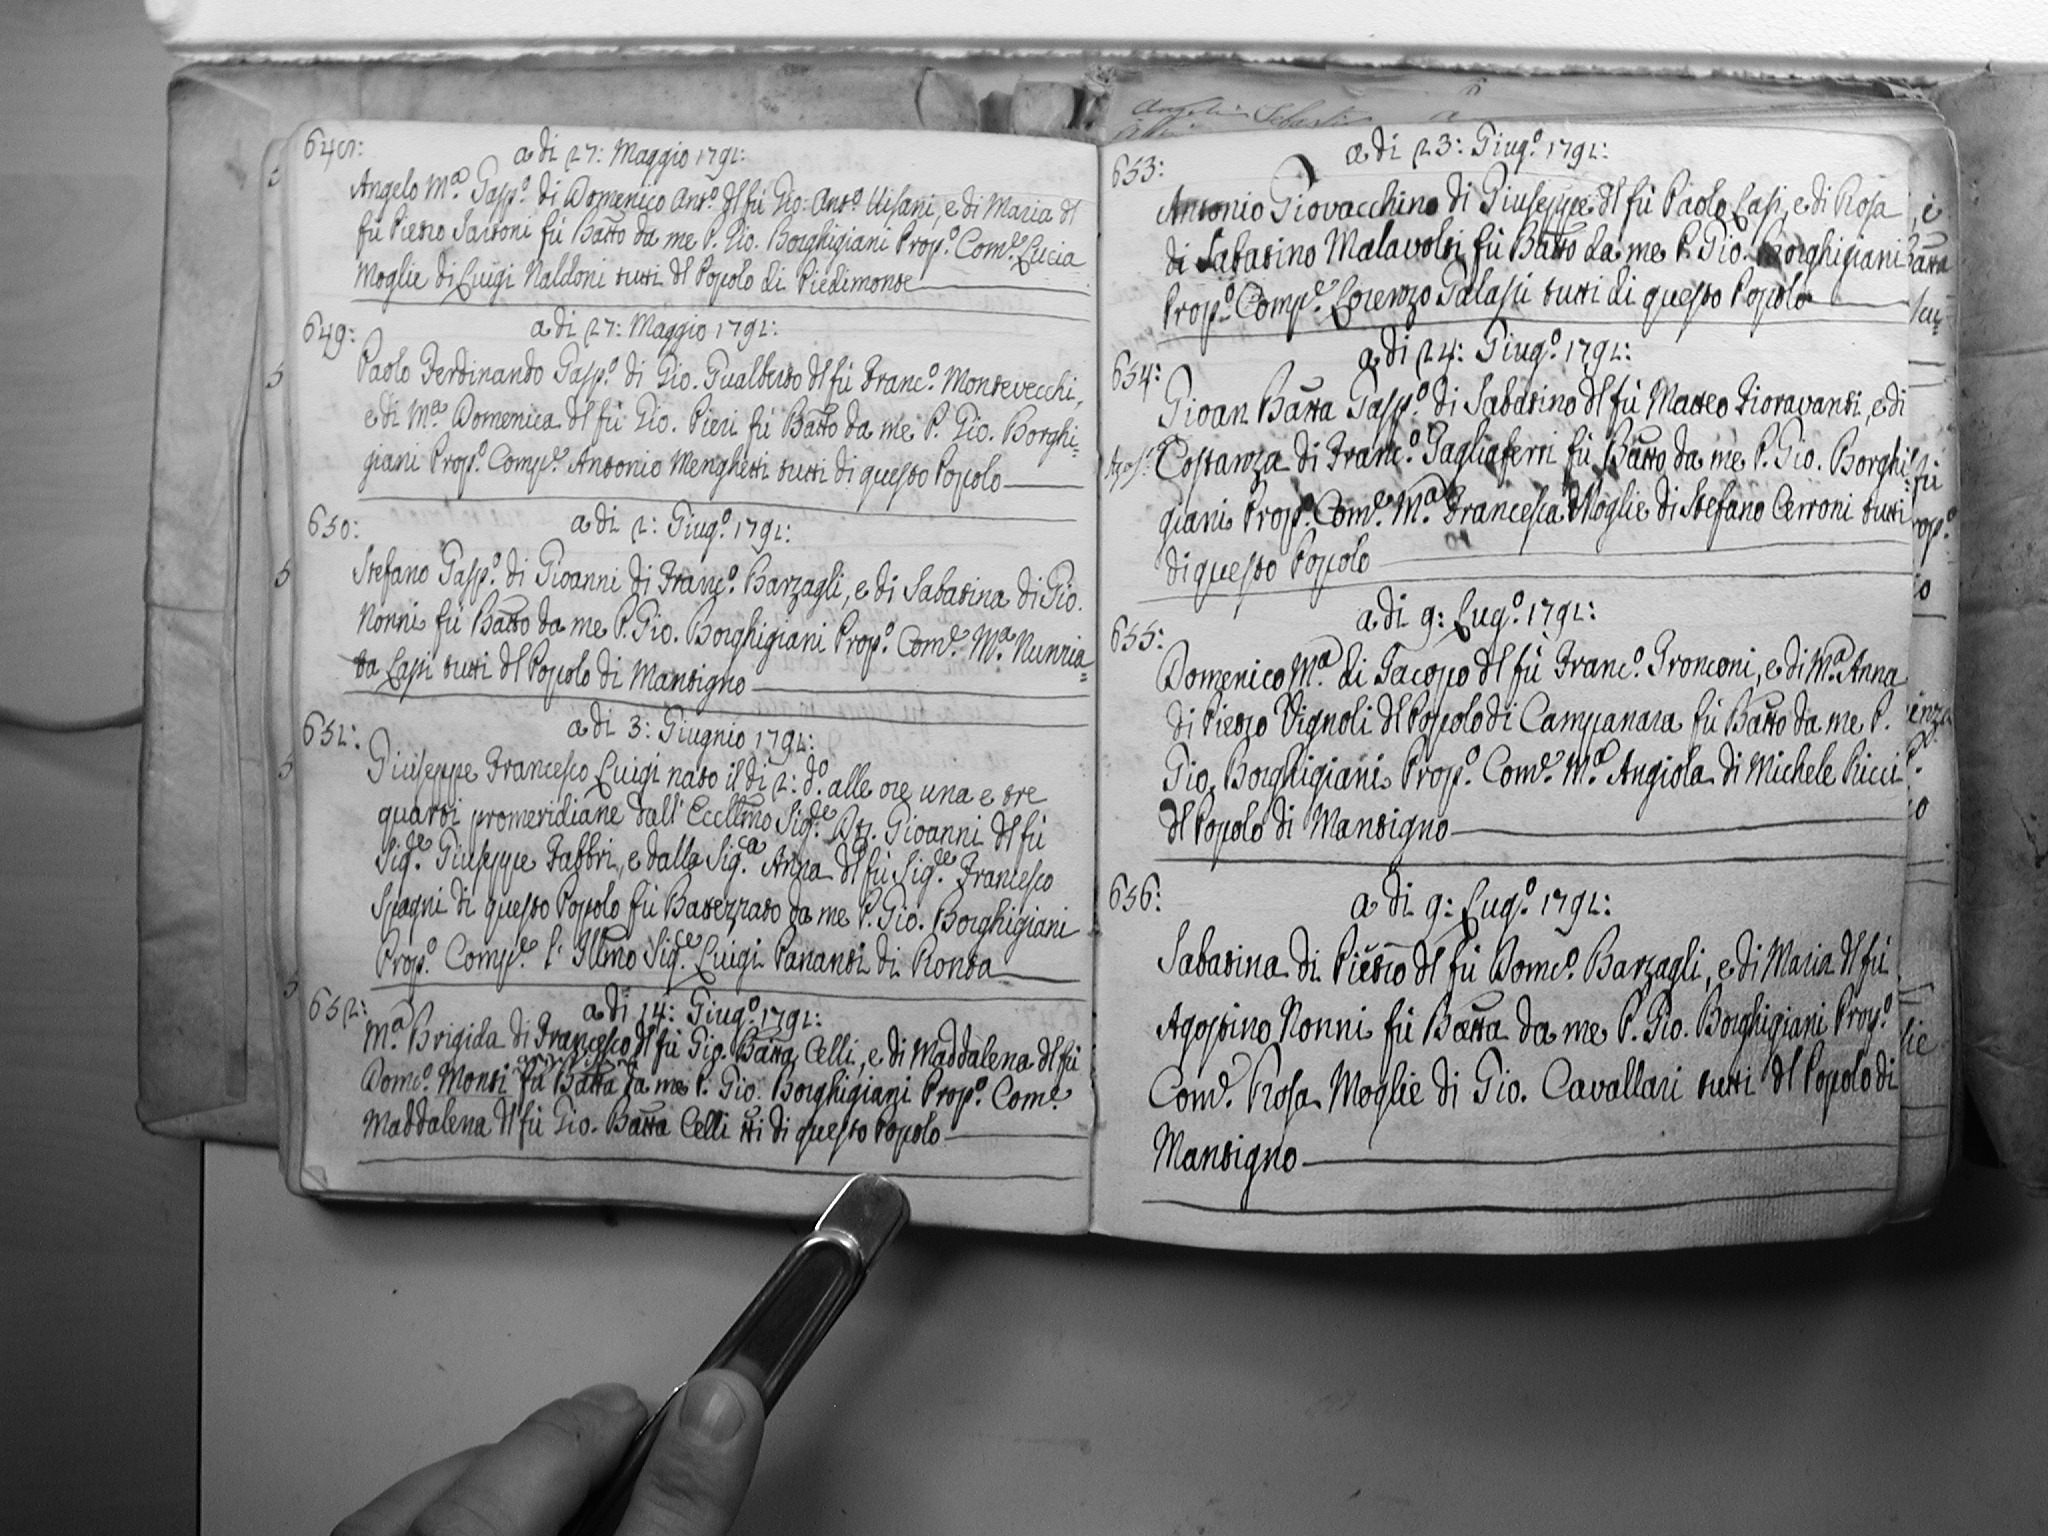 648:
a di 27: Maggio 1792:
Angelo M.ª Gasp.º di Domenico Ant.º dl fù Gio: Ant.º Visani, e di Maria dl
fù Pietro Sartoni fù Batto da me P. Gio. Borghigiani Prop.º Com.e Lucia
Moglie di Luigi Naldoni tutti dl Popolo di Piedimonte
649:
a di 27: Maggio 1792:
Paolo Ferdinando Gasp.º di Gio. Gualberto dl fù Franc.º Montevecchi,
e di M.ª Domenica dl fù Gio. Pieri fù Batto da me P. Gio. Borghi=
giani Prop.º Comp.e Antonio Menghetti tutti di questo Popolo
650:
a di 2: Giug.º 1792:
Stefano Gasp.º di Gioanni di Franc.º Barzagli, e di Sabatina di Gio.
Nonni fù Batto da me P. Gio. Borghigiani Prop.º Com.e M.ª Nunzia=
ta Lapi tutti dl Popolo di Mantigno
651:
a di 3: Giugnio 1792:
Giuseppe Francesco Luigi nato il di 2: d.º alle ore una e tre
quarti promeridiane dall' Eccllmo Sig.re Dtt. Gioanni dl fù
Sig.re Giuseppe Fabbri, e dalla Sig.ra Anna dl fù Sig.re Francesco
Spagni di questo Popolo fù Batezzato da me P. Gio. Borghigiani
Prop.º Comp.e l' Illmo Sig.re Luigi Pananti di Ronta
652:
a di 14: Giug.º 1792:
M.ª Brigida di Francesco dl fù Gio. Batta Celli, e di Maddalena dl fù
Dom.co Monti fù Batta da me P. Gio. Borghigiani Prop.º Com.e
Maddalena dl fù Gio. Batta Celli tti di questo Popolo
653:
a di 23: Giug.º 1792:
Antonio Giovacchino di Giuseppe dl fù Paolo Lapi, e di Rosa
di Sabatino Malavolti fù Batto da me P. Gio. Borghigiani
Prop.º Comp.e Lorenzo Galassi tutti di questo Popolo
654:
a di 24: Giug.º 1792:
Gioan Batta Gasp.º di Sabatino dl fù Matteo Fioravanti, e di
Costanza di Franc.º Tagliaferri fù Batto da me P. Gio. Borghi=
giani Prop.º Com.e M.ª Francesca Moglie di Stefano Cerroni tutti
di questo Popolo
655:
a di 9: Lug.º 1792:
Domenico M.ª di Jacopo dl fù Franc.º Gronconi, e di M.ª Anna
di Pietro Vignoli dl Popolo di Campanara fù Batto da me P.
Gio. Borghigiani Prop.º Com.e M.ª Angiola di Michele Ricci
dl Popolo di Mantigno
656:
a di 9: Lug.º 1792:
Sabatina di Pietro dl fù Dom.co Barzagli, e di Maria dl fù
Agostino Nonni fù Batta da me P. Gio. Borghigiani Prop.º
Com.e Rosa Moglie di Gio. Cavallari tutti dl Popolo di
Mantigno